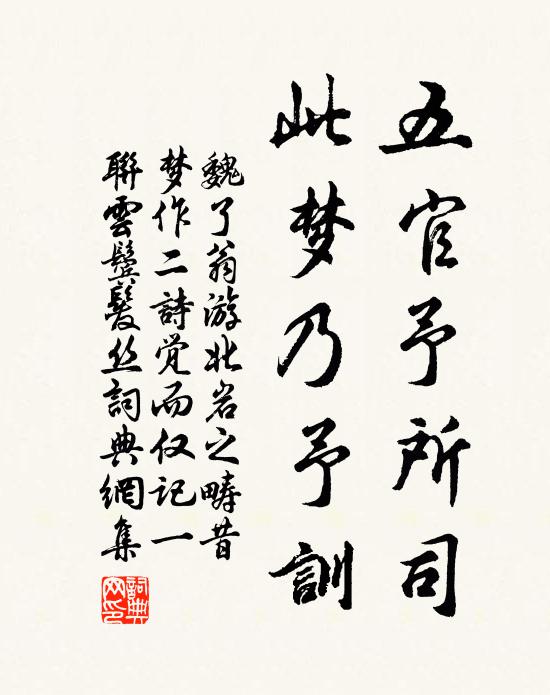 五官予所司
此梦乃予訓
魏了翁游北岩之畴昔
梦作二詩觉而仅记一
聯雲鬟鬓丝詞典網集
詞典
网印